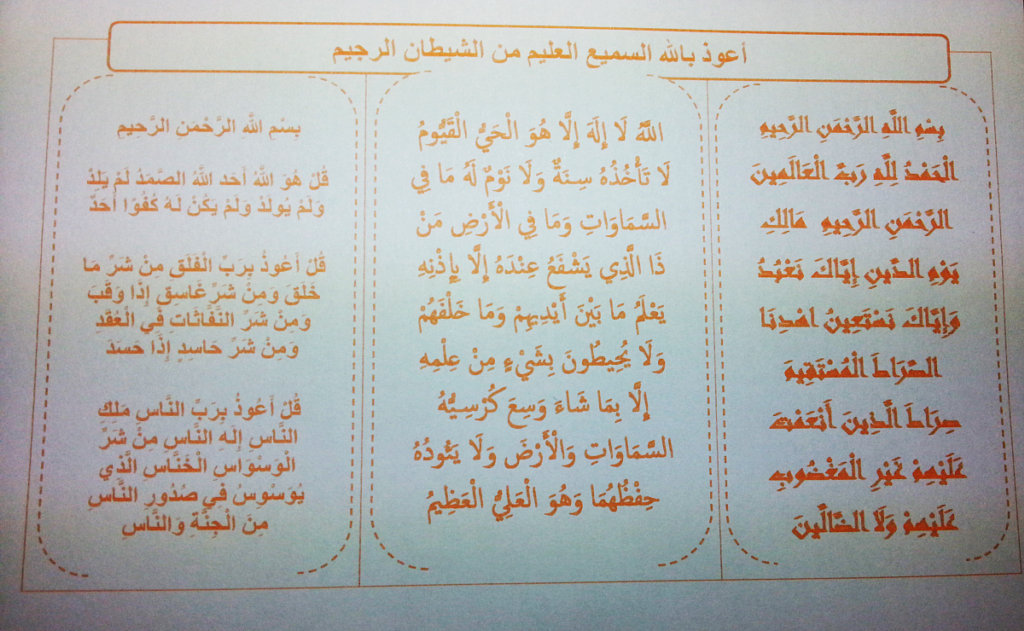 أعوذ بالله السميع العليم من الشيطان الرجيم
بِسْمِ اللَّهِ الرَّحْمَنِ الرَّحِيمِ
الْحَمْدُ لِلَّهِ رَبِّ الْعَالَمِينَ
الرَّحْمَنِ الرَّحِيمِ مَالِكِ
يَوْمِ الدِّينِ إِيَّاكَ نَعْبُدُ
وَإِيَّاكَ نَسْتَعِينُ اهْدِنَا
الصِّرَاطَ الْمُسْتَقِيمَ
صِرَاطَ الَّذِينَ أَنْعَمْتَ
عَلَيْهِمْ غَيْرِ الْمَغْضُوبِ
عَلَيْهِمْ وَلَا الضَّالِّينَ
اللَّهُ لَا إِلَهَ إِلَّا هُوَ الْحَيُّ الْقَيُّومُ
لَا تَأْخُذُهُ سِنَةٌ وَلَا نَوْمٌ لَهُ مَا فِي
السَّمَاوَاتِ وَمَا فِي الْأَرْضِ مَنْ
ذَا الَّذِي يَشْفَعُ عِنْدَهُ إِلَّا بِإِذْنِهِ
يَعْلَمُ مَا بَيْنَ أَيْدِيهِمْ وَمَا خَلْفَهُمْ
وَلَا يُحِيطُونَ بِشَيْءٍ مِنْ عِلْمِهِ
إِلَّا بِمَا شَاءَ وَسِعَ كُرْسِيُّهُ
السَّمَاوَاتِ وَالْأَرْضَ وَلَا يَئُودُهُ
حِفْظُهُمَا وَهُوَ الْعَلِيُّ الْعَظِيمُ
بِسْمِ اللَّهِ الرَّحْمَنِ الرَّحِيمِ
قُلْ هُوَ اللَّهُ أَحَد اللَّهُ الصَّمَدُ لَمْ يَلِدْ
وَلَمْ يُولَدْ وَلَمْ يَكُنْ لَهُ كُفُوًا أَحَدٌ
قُلْ أَعُوذُ بِرَبِّ الْفَلَقِ مِنْ شَرِّ مَا
خَلَقَ وَمِنْ شَرِّ غَاسِقٍ إِذَا وَقَبَ
وَمِنْ شَرِّ النَّفَّاثَاتِ فِي الْعُقَدِ
وَمِنْ شَرِّ حَاسِدٍ إِذَا حَسَدَ
قُلْ أَعُوذُ بِرَبِّ النَّاسِ مَلِكِ
النَّاسِ إِلَهِ النَّاسِ مِنْ شَرِّ
الْوَسْوَاسِ الْخَنَّاسِ الَّذِي
يُوَسْوِسُ فِي صُدُورِ النَّاسِ
مِنَ الْجِنَّةِ وَالنَّاسِ